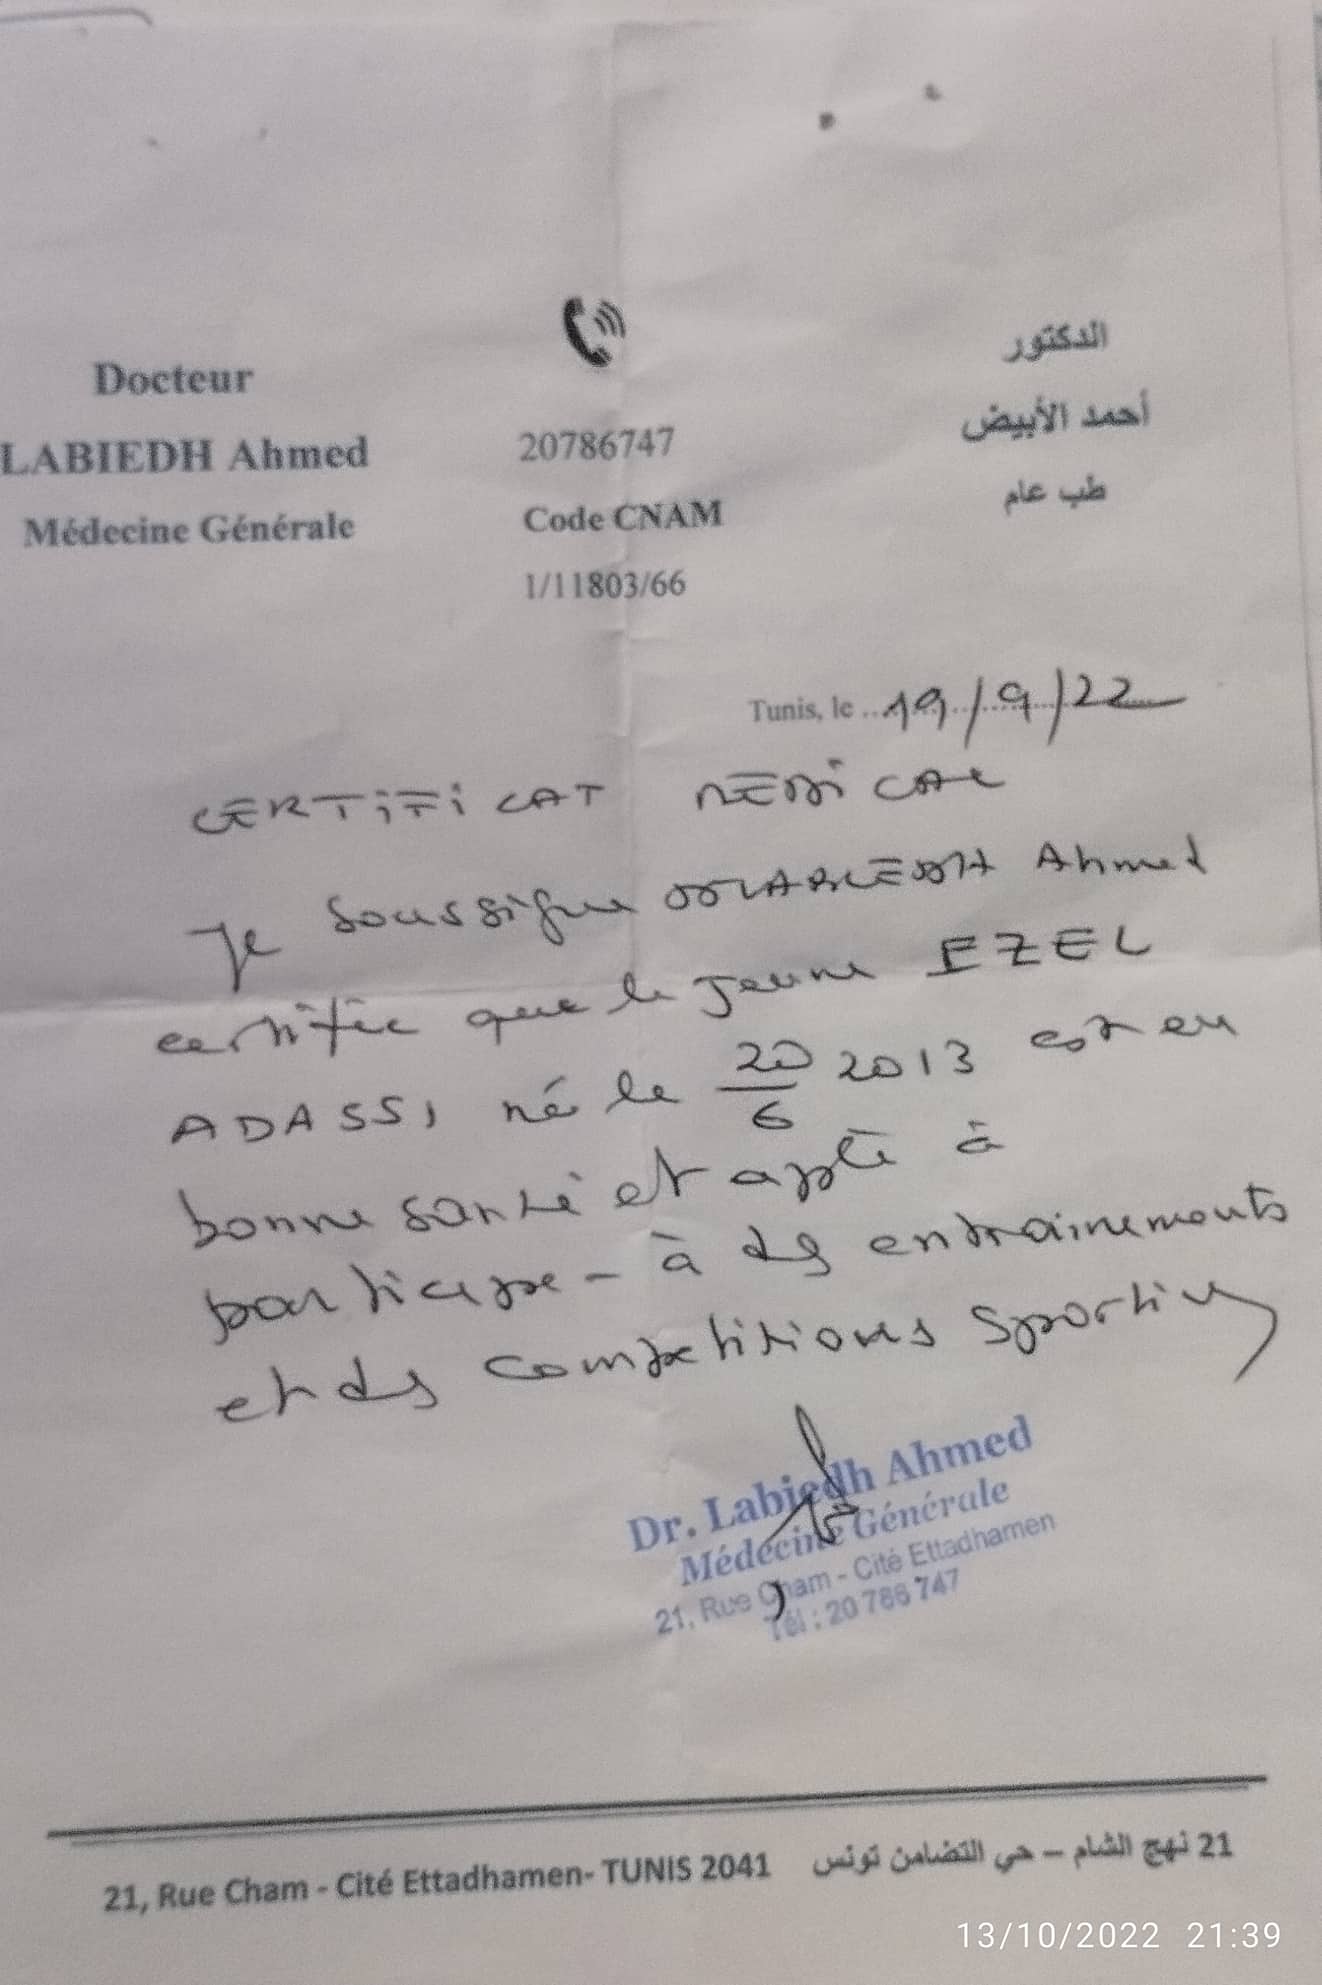 Docteur
LABIEDH Ahmed
Médecine Générale
20786747
Code CNAM
1/11803/66
الدكتور
أحمد الأبيض
طب عام
Tunis, le 19/9/22
CERTIFICAT MEDICAL
Je soussigne Ahmed
certifie que le jeune EZEL
ADASSI né le 20/6 2013 est en
bonne santé et apte à
participer à des entrainements
et des competitions sportives
Dr. Labiedh Ahmed
Médecine Générale
21, Rue Cham - Cité Ettadhamen
Tél : 20 786 747
21, Rue Cham - Cité Ettadhamen- TUNIS 2041
21 نهج الشام – حي التضامن تونس
13/10/2022 21:39